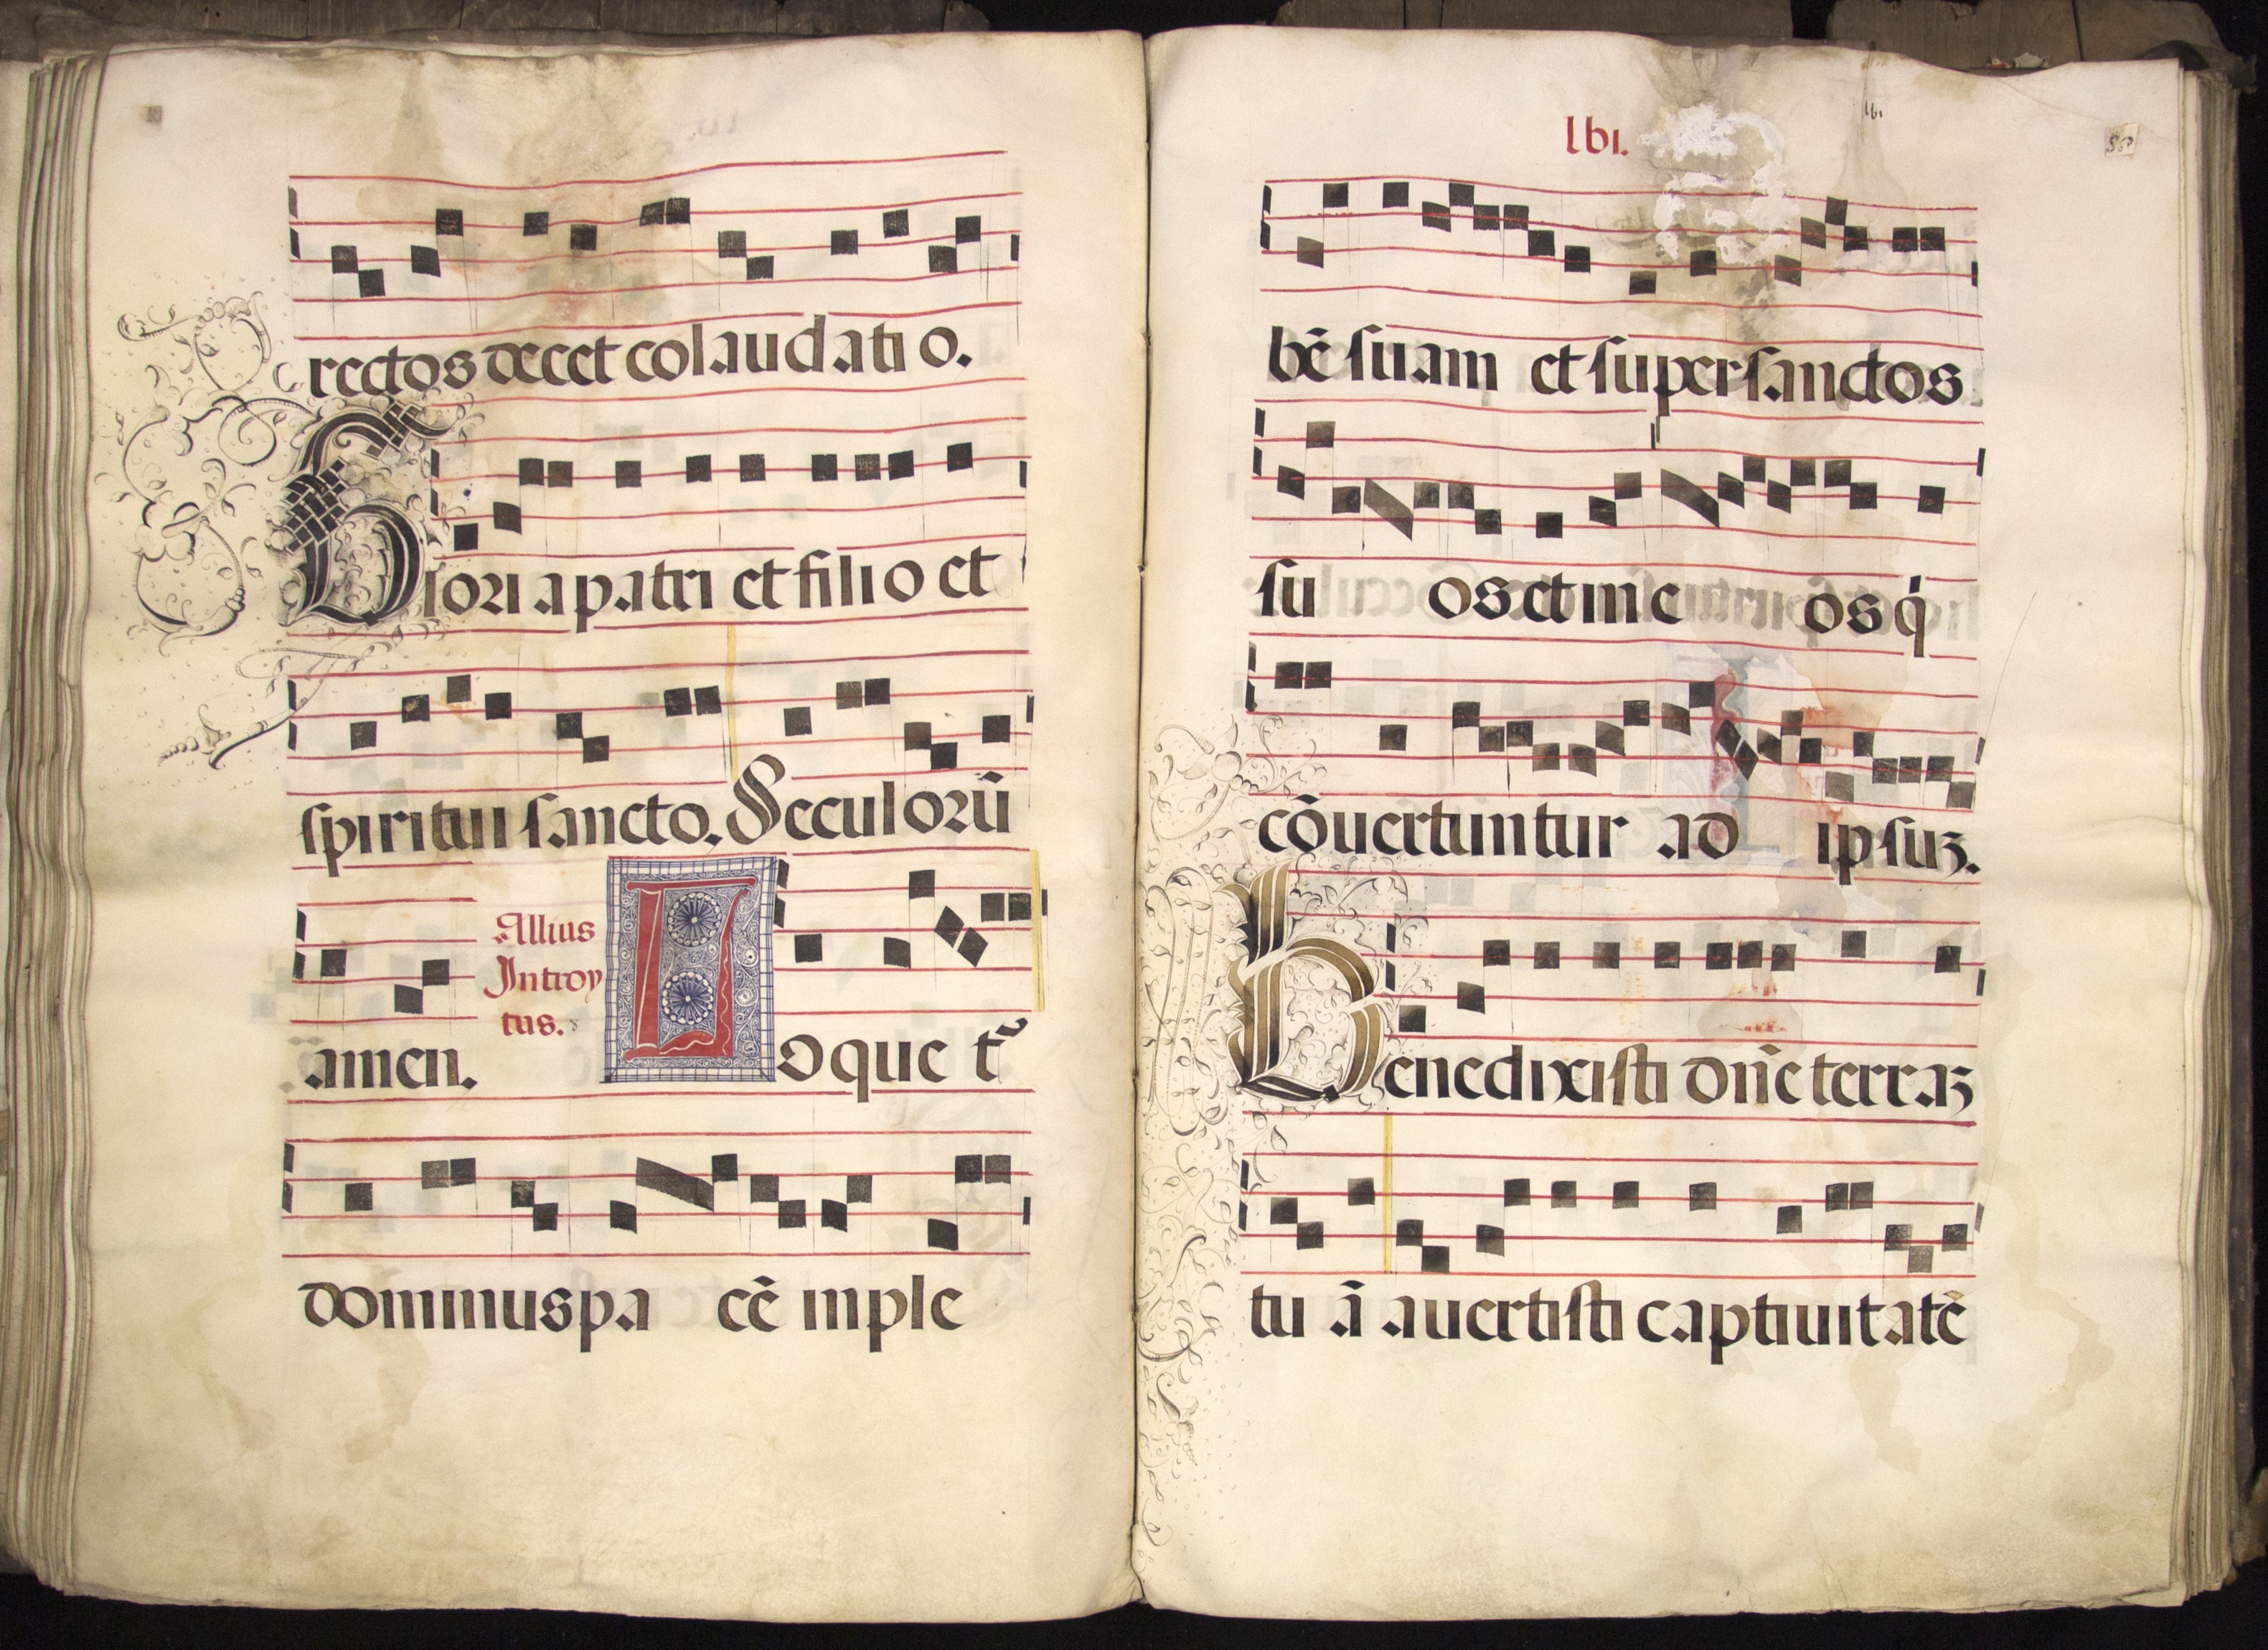 rectos decet colaudatio.
Gloria patri et filio et
spiritui sancto. Seculorū
amen.
Allius
Introy
tus.
Loque t᷑
dominus pa cē inple
lvi.
lvi
bē suam et super sanctos
su os et in e os q̇
cōuertuntur ad ipsuꝫ.
Benedixisti dn̄e terraꝫ
tu ā auertisti captiuitatē